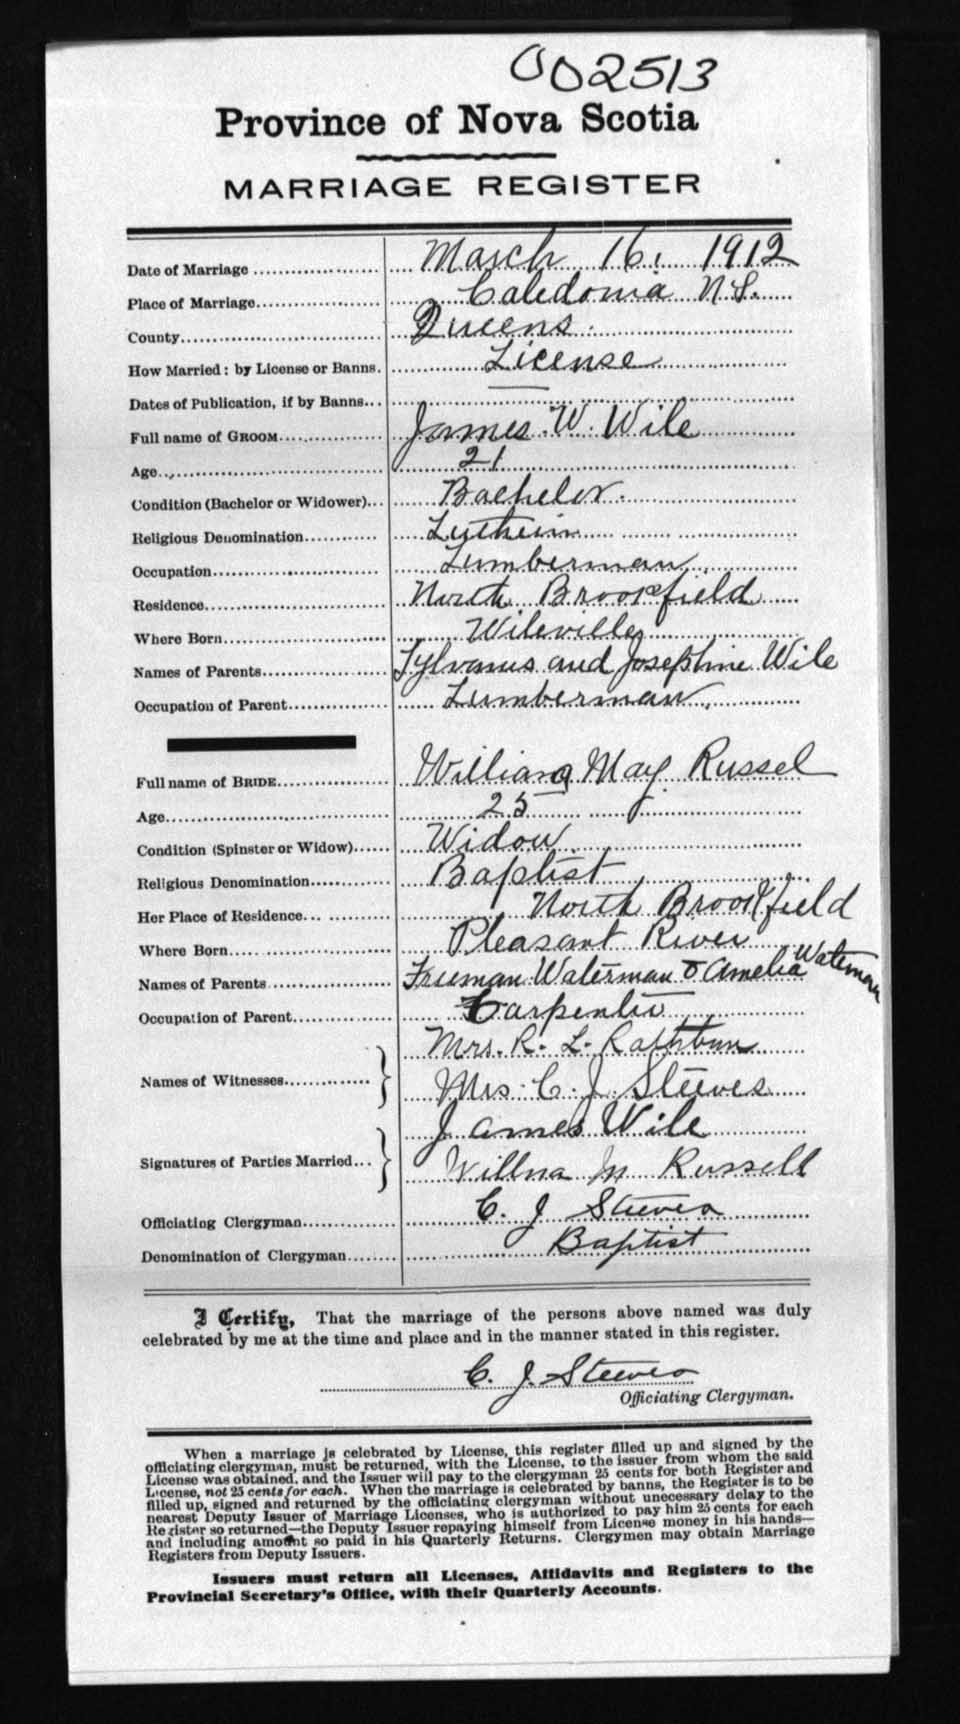 002513
Province of Nova Scotia
MARRIAGE REGISTER
Date of Marriage March 16. 1912
Place of Marriage Caledonia N.S.
County Queens.
How Married: by License or Banns. License
Dates of Publication, if by Banns... —
Full name of GROOM James W. Wile
Age 21
Condition (Bachelor or Widower)... Bachelor.
Religious Denomination
Occupation Lumberman
Residence North Brookfield
Where Born Wileville
Names of Parents Sylvanus and Josephine Wile
Occupation of Parent Lumberman
Full name of BRIDE May Russel
Age 25
Condition (Spinster or Widow) Widow
Religious Denomination Baptist
Her Place of Residence North Brookfield
Where Born Pleasant River
Names of Parents Freeman Waterman & Amelia Waterman
Occupation of Parent Carpenter
Mrs. R. L. Rathbun
Names of Witnesses Mrs. C. J. Steeves
James Wile
Signatures of Parties Married... Willna M Russell
Officiating Clergyman C. J. Steeves
Denomination of Clergyman Baptist
I Certify, That the marriage of the persons above named was duly
celebrated by me at the time and place and in the manner stated in this register.
C. J. Steeves
Officiating Clergyman.
When a marriage is celebrated by License, this register filled up and signed by the
officiating clergyman, must be returned, with the License, to the issuer from whom the said
License was obtained, and the Issuer will pay to the clergyman 25 cents for both Register and
License, not 25 cents for each. When the marriage is celebrated by banns, the Register is to be
filled up, signed and returned by the officiating clergyman without unnecessary delay to the
nearest Deputy Issuer of Marriage Licenses, who is authorized to pay him 25 cents for each
Register so returned—the Deputy Issuer repaying himself from License money in his hands—
and including amount so paid in his Quarterly Returns. Clergymen may obtain Marriage
Registers from Deputy Issuers.
Issuers must return all Licenses, Affidavits and Registers to the
Provincial Secretary's Office, with their Quarterly Accounts.